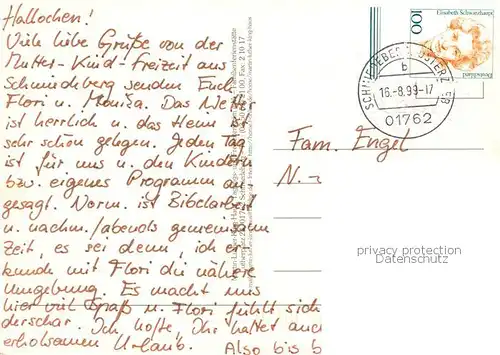 Hallochen!
Viele liebe Grüße von der
Mutter-Kind-freizeit aus
Schmiedeberg senden Euch
Flori u. Monika. Das Wetter
ist herrlich u. das Heim ist
sehr schön gelegen. Jeden Tag
ist für uns u. den Kindern
bzw. eigenes Programm an
gesagt. Norm. ist Bibelarbeit
u. nachm./abends gemeinsame
Zeit, es sei denn, ich er-
kunde mit Flori die nähere
Umgebung. Es macht uns
hier viel Spaß u. Flori fühlt sich
Ich hoffe, Ihr hattet auch
erholsamen Urlaub. Also bis b
Elisabeth Schwarzhaupt
100
Deutschland
b
16.-8.99-17
01762
Fam. Engel
N.
privacy protection
Datenschutz